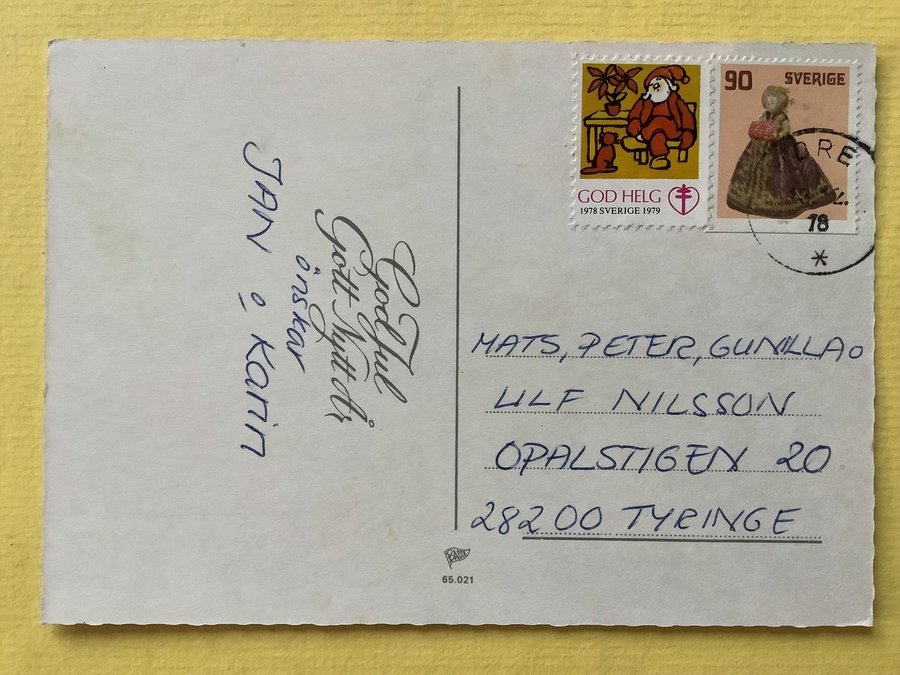 God Jul
Gott Nytt År
önskar
JAN o Karin
GOD HELG
1978 SVERIGE 1979
90 SVERIGE
1978
DRE
78
*
MATS, PETER, GUNILLA o
ULF NILSSON
OPALSTIGEN 20
282 00 TYRINGE
65.021